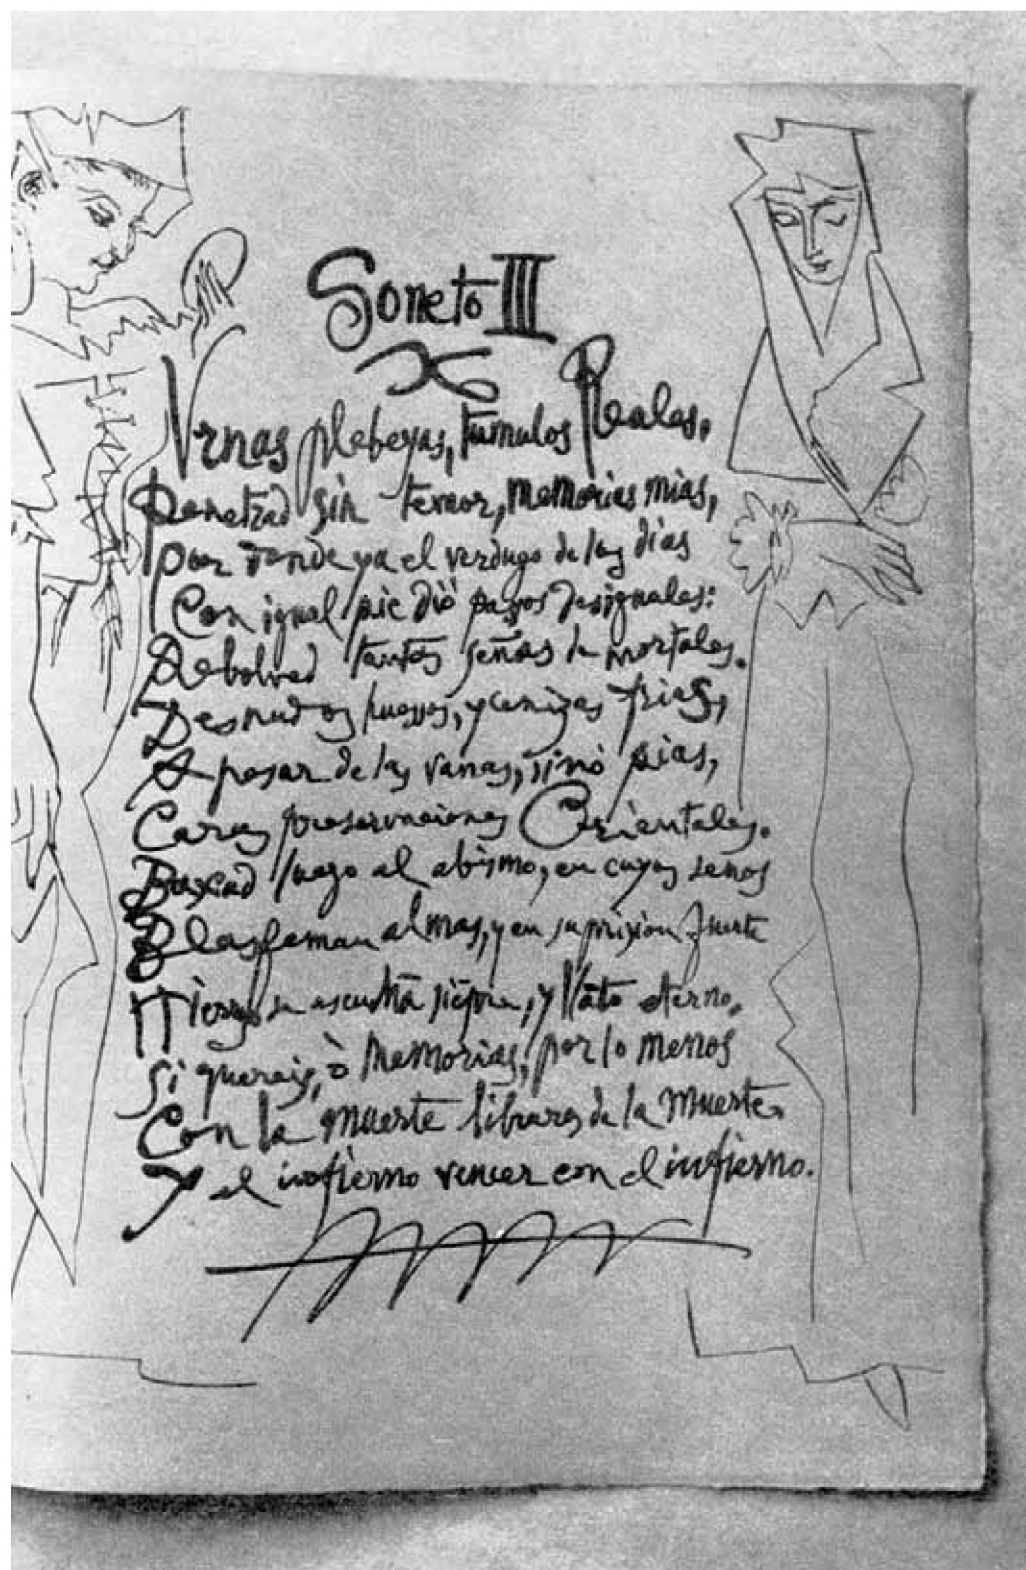 Soneto III
Vrnas plebeyas, tumulos Reales,
Penetrad sin temor, memorias mias,
Por donde ya el verdugo de los dias
Con igual pie diò pasos desiguales:
Rebolved tantas señas de mortales.
Desnudos huessos, y cenizas frias,
A pesar de las vanas, sinò pias,
Caras preservaciones Orientales.
Baxad luego al abismo, en cuyos senos
Blasfeman almas, y en su prixion fuerte
Hierros se escuchã siẽpre, y llãto eterno,
Si quereis, ò memorias, por lo menos
Con la muerte libraros de la muerte,
Y el infierno vencer con el infierno.